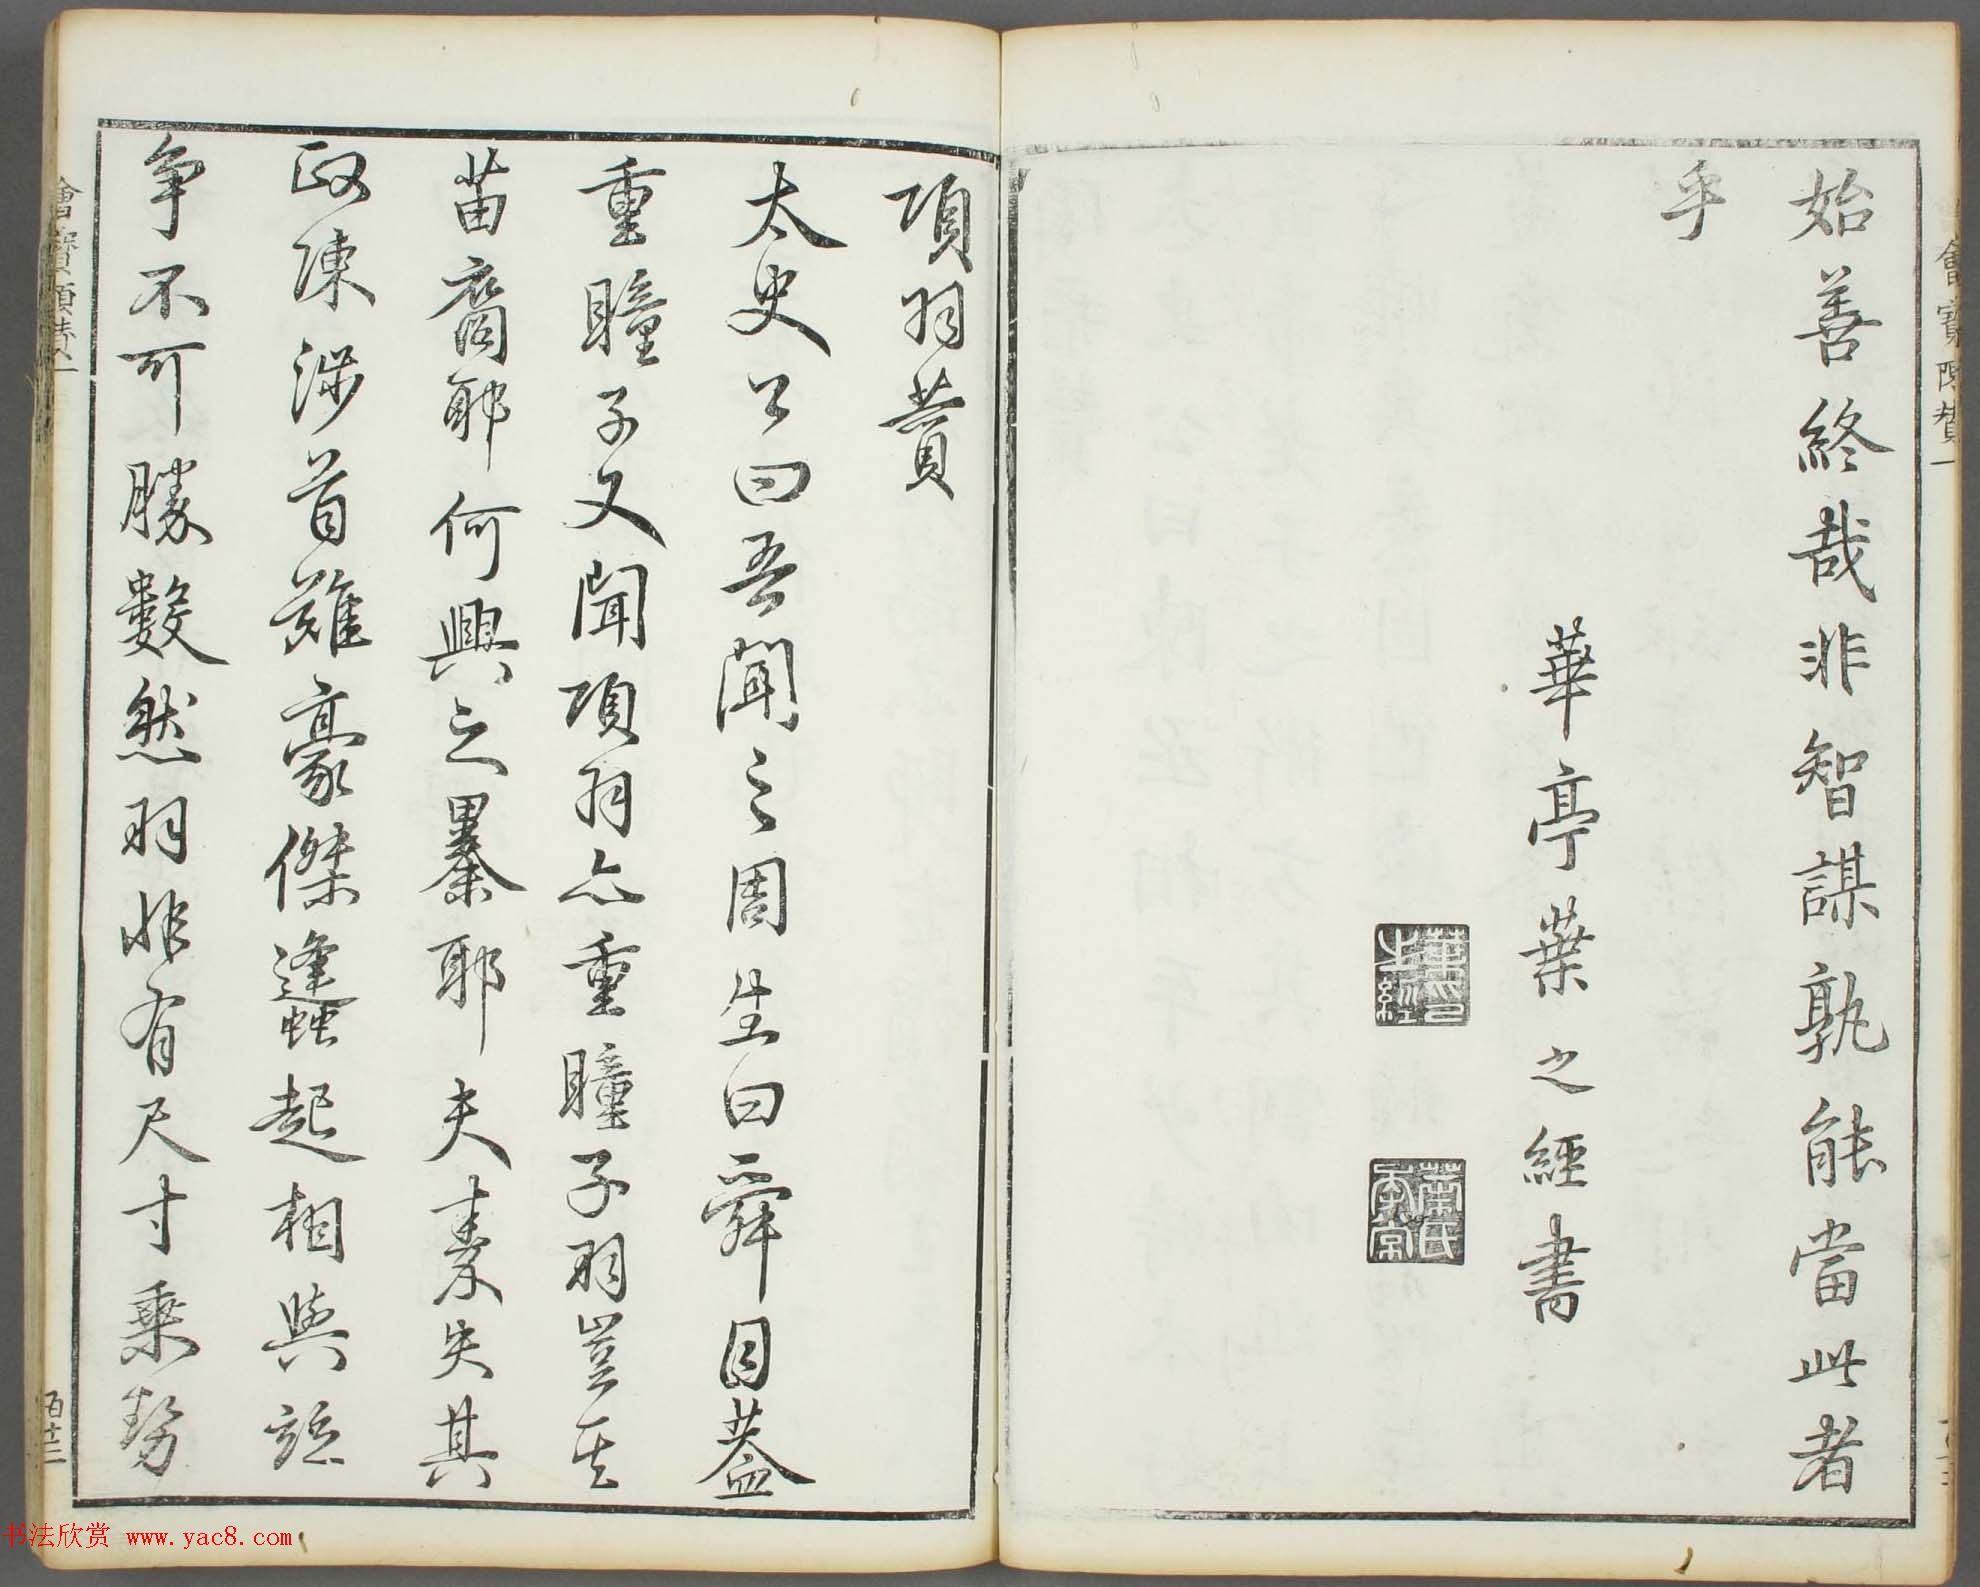 始善終哉非智謀孰能當此者
乎
華亭葉之經書
項羽賛
太史公曰吾聞之周生曰舜目葢
重瞳子又聞項羽亦重瞳子羽豈其
苗裔耶何興之暴耶夫秦失其
政陳涉首難豪傑蠭起相與竝
争不可勝數然羽非有尺寸乗勢
书法欣赏 www.yac8.com